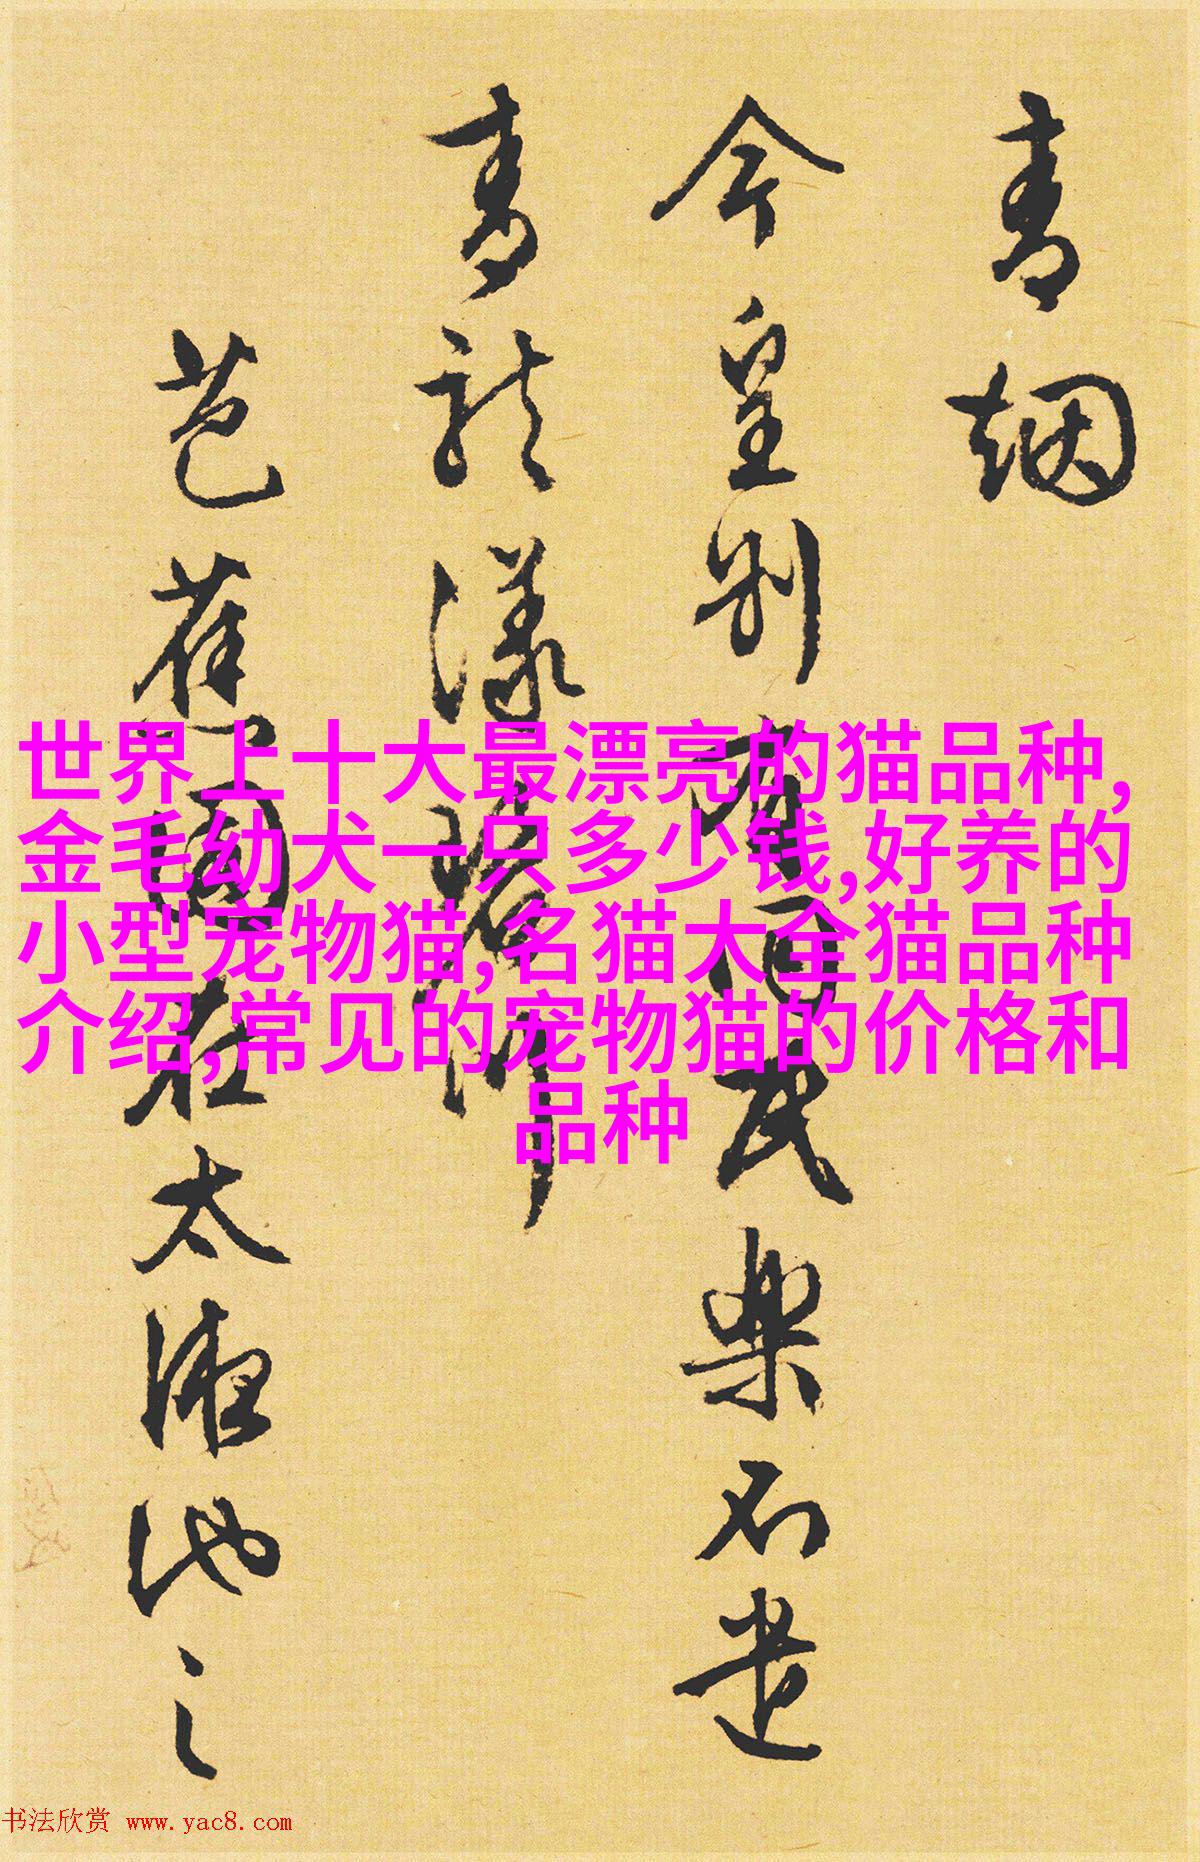 青烟
今皇别有樂石
青龍漾碧
芭蕉園在太液池之
世界上十大最漂亮的猫品种,
金毛幼犬一只多少钱,好养的
小型宠物猫,名猫大全猫品种
介绍,常见的宠物猫的价格和
品种
书法欣赏 www.yac8.com